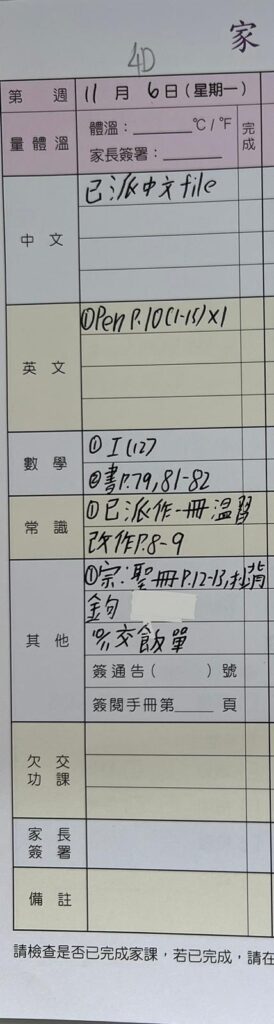 家
4D
第 週 11 月 6 日 (星期一) 完成
量體溫 體溫：______°C / °F
家長簽署：______
中文 已派中文file
英文 ①Open P.10(1-15)×1
數學 ① I (12)
②書P.79, 81-82
常識 ①已派作一冊溫習
改作P.8-9
其他 ①宗:聖冊P.12-13,
鉤
交飯單
簽通告 ( ) 號
簽閱手冊第____頁
欠交功課
家長簽署
備註
請檢查是否已完成家課，若已完成，請在